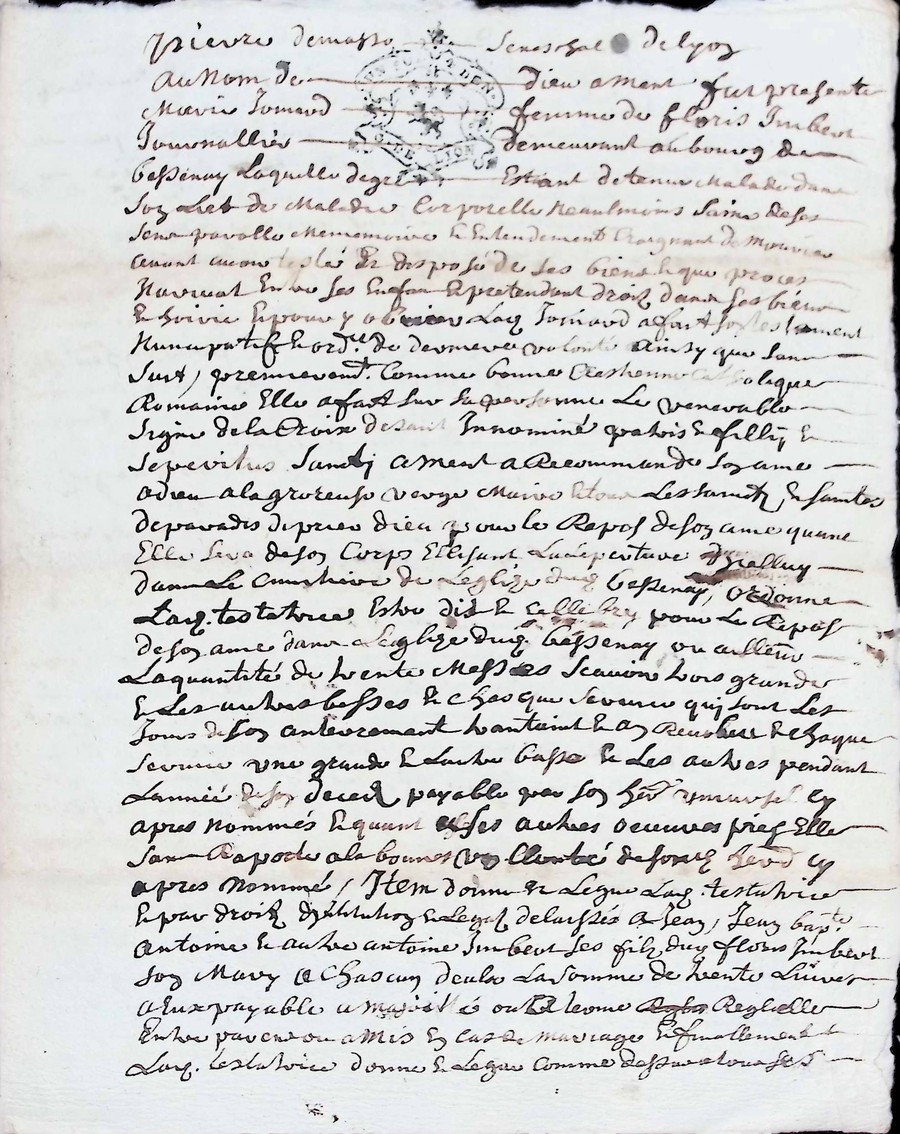 pierre demasso seneschal de lyon
Au Nom de Dieu ament fut presente
Marie Jomard femme de floris Imbert
Journallier demeurant au bourg de
bessenay laquelle de gre Estant detenue Malade dans
son Lict de Maladie Corporelle neaulmoins saine de ses
sens parolle Memmoire & Entendement Craignant de Mourir
avant avoir testé Et disposé de ses biens & que proces
Narrivat Entre ses Enfans & pretendant droit dans ses biens
& hoirie & pour y obvier Laq. Jomard a fait son testament
Nuncupatif & ord.re de derniere volonté Ainsy que sans
suit, premierem.t Comme bonne Crestienne Catholique
Romaine Elle a fait sur sa personne Le venerable
signe de la Croix disant In nominé patris & fillij &
sepiritus santj ament a Recommande son ame
a dieu a la glorieuse vierge Marie & tous Les saincts & saintes
de paradis de prier dieu pour le Repos de son ame quant
Elle sera de son Corps Ellisant La seperture dicelluy
dans Le Cimetiere de Léglize dud. bessenay, ordonne
Laq. testatrice Estre dit & cellebre pour Le Repos
de son ame dans Léglize dud. bessenay ou allieurs
La quantité de trente Messes scavoir trois grande
& Les autres basses & chasque service quj sont Les
Jours de son anterrement trantain & an Revolleu & chaque
service une grande & Lautre basse & Les autres pendant
Lannée de son decedz payable par son her. unniversel cy
apres nommés & quant a ses autres oeuvres pies Elle
sans Raporte a la bonnes vollonté de sond. herd. cy
apres nommé, Item donne & Legue Laq. testatrice
& par droit dinstitution & Legat delaissés a Jean, Jean bap.te
Antoine & autre antoine Imbert ses filz dud. floris Imbert
son Mary a Chascun deulx La somme de trente Livres
a Eux payable a majorité ou terme Reglelle
Entre parens ou amis En cas de mariage & finallement
Laq. testatrice donne & Legue comme dessus a tous ses